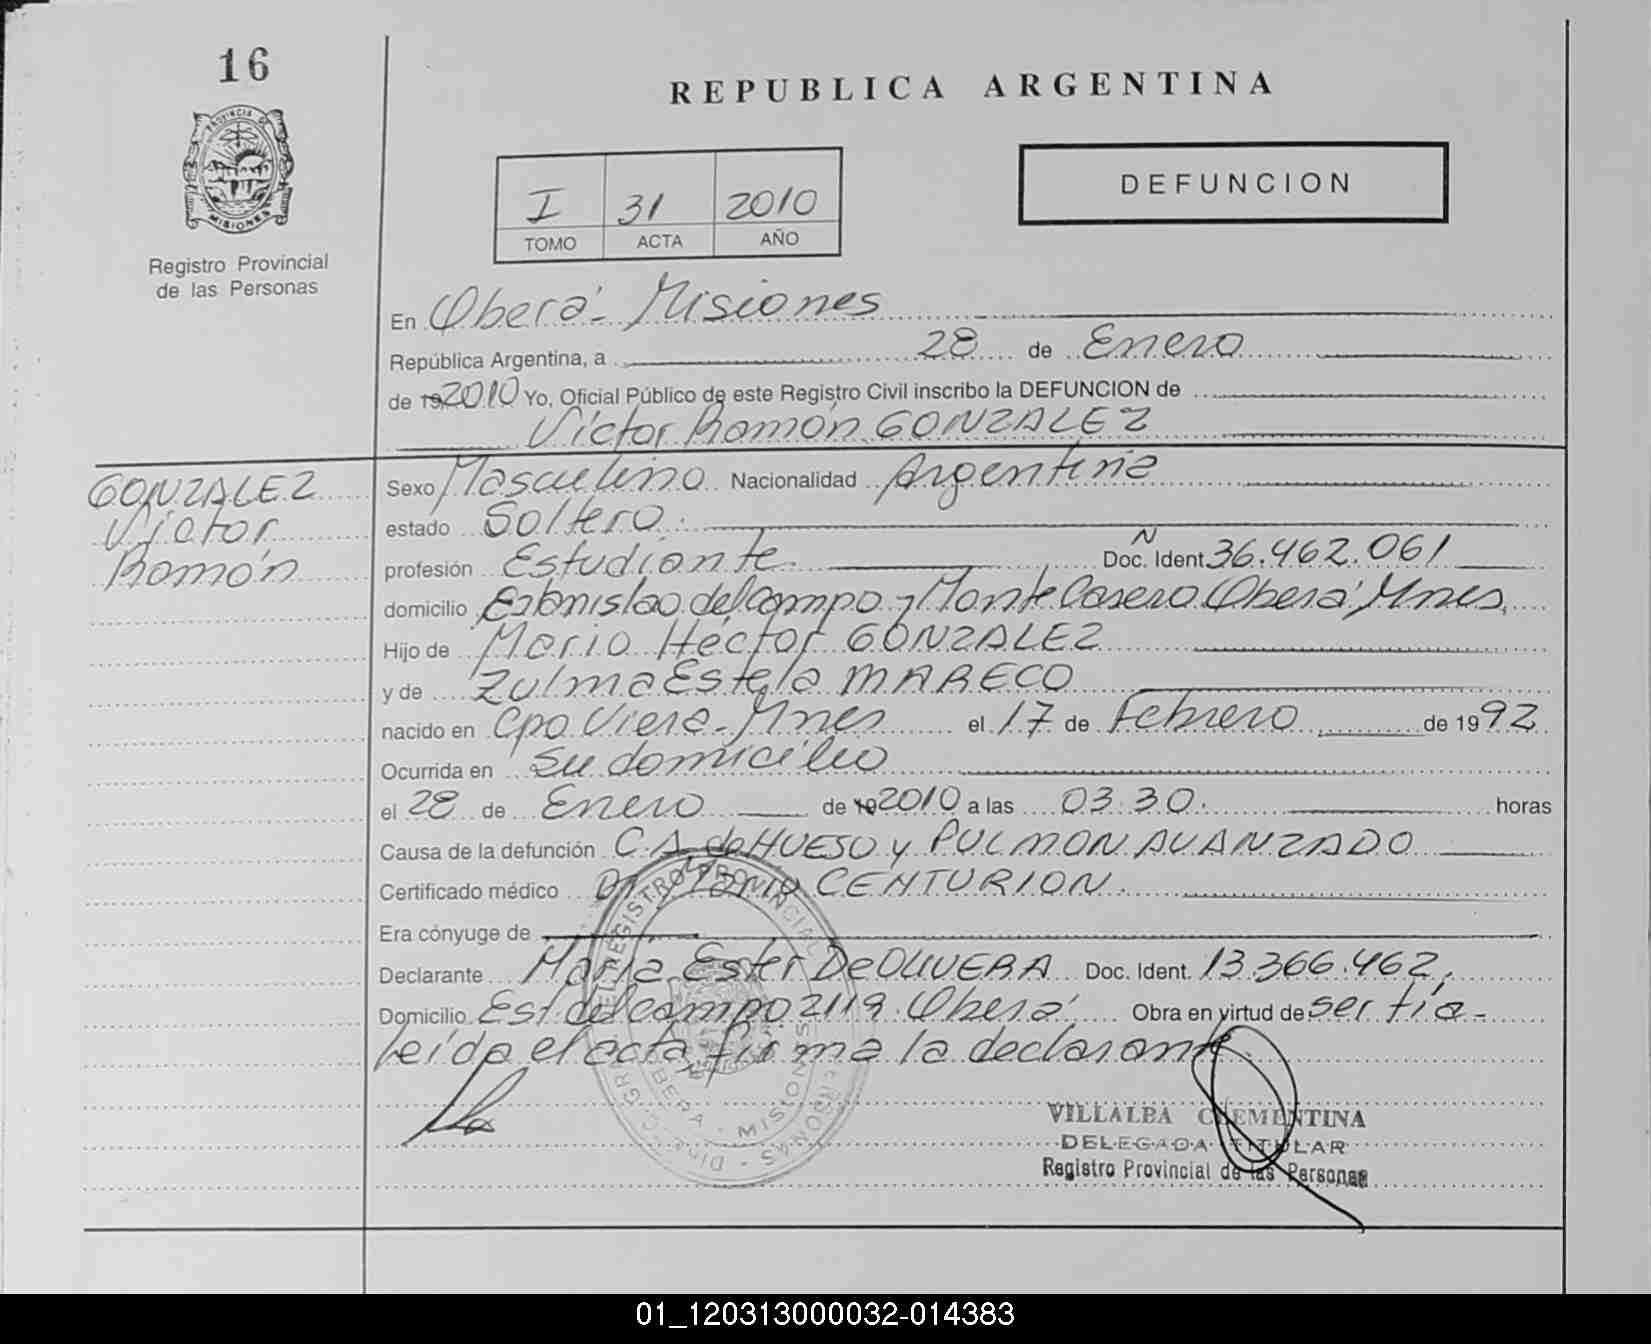 16
REPUBLICA ARGENTINA
PROVINCIA DE
MISIONES
Registro Provincial
de las Personas
I 31 2010
TOMO ACTA AÑO
DEFUNCION
En Oberá - Misiones
República Argentina, a 28 de Enero
de 19 2010 Yo, Oficial Público de este Registro Civil inscribo la DEFUNCION de
Víctor Ramón GONZALEZ
GONZALEZ
Víctor
Ramón
Sexo Masculino Nacionalidad Argentina
estado Soltero.
profesión Estudiante Doc. Ident N 36.462.061
domicilio Estanislao del Campo y Monte Casero Oberá Mnes,
Hijo de Mario Héctor GONZALEZ
y de Zulma Estela MARECO
nacido en Cpo Viera - Mnes el 17 de Febrero de 1992
Ocurrida en su domicilio
el 28 de Enero de 19 2010 a las 03.30. horas
Causa de la defunción C.A. de HUESO y PULMON AVANZADO
Certificado médico CENTURION.
Era cónyuge de
Declarante María Ester De OLIVERA Doc. Ident. 13.366.462.
Domicilio Est del campo 2119 Oberá Obra en virtud de ser tía -
leída el acta, firma la declarante.
REGISTRO PROVINCIAL
OBERA - MISIONES
VILLALBA CLEMENTINA
DELEGADA TITULAR
Registro Provincial de las Personas
01_120313000032-014383